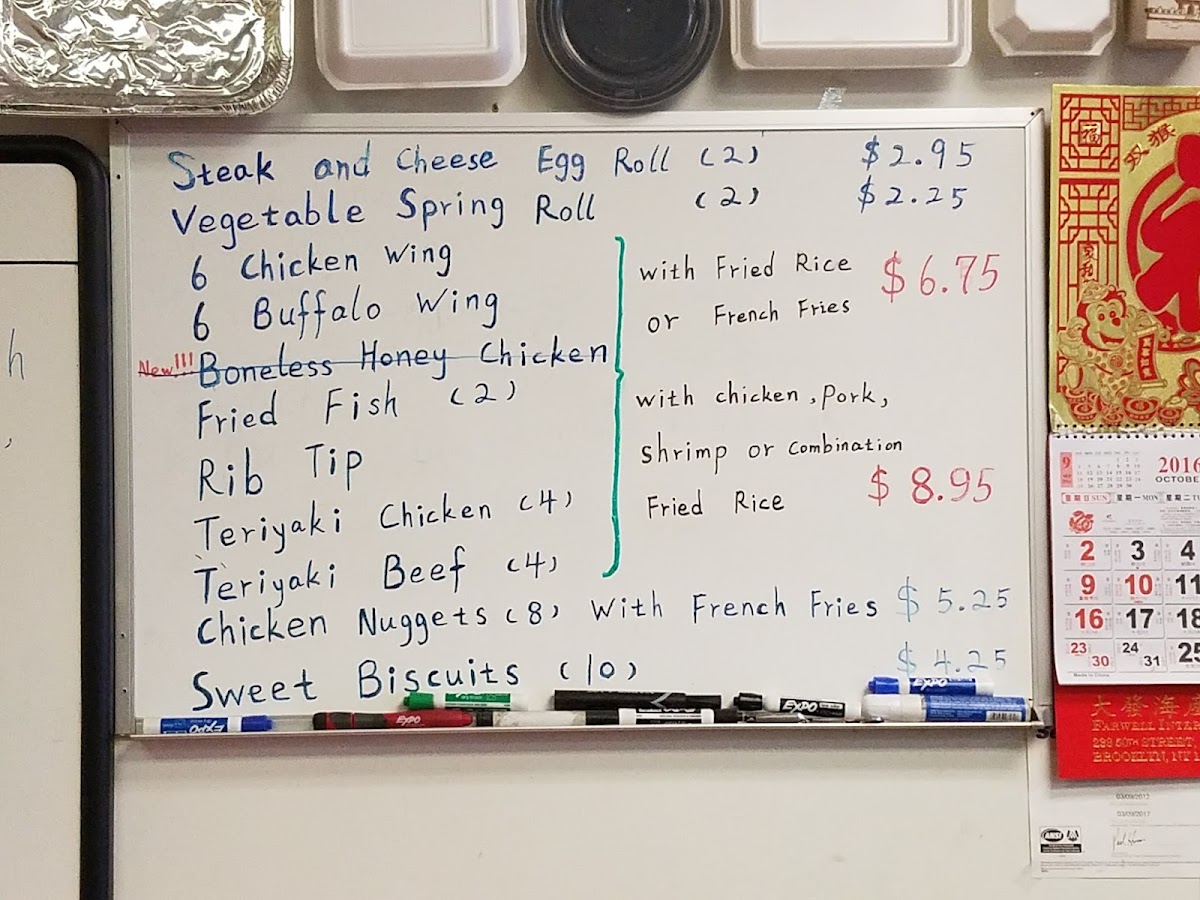 Steak and Cheese Egg Roll (2) $2.95
Vegetable Spring Roll (2) $2.25
6 Chicken Wing
6 Buffalo Wing
New!!! Boneless Honey Chicken
Fried Fish (2)
Rib Tip
Teriyaki Chicken (4)
Teriyaki Beef (4)
with Fried Rice $6.75
or French Fries
with chicken, pork,
shrimp or combination
Fried Rice $8.95
Chicken Nuggets (8) With French Fries $5.25
Sweet Biscuits (10) $4.25
EXPO
EXPO
EXPO
EXPO
h
福
双猴
9 2016
OCTOBE
星期日SUN 星期一MON 星期二TU
2 3 4
9 10 11
16 17 18
23 30 24 31 25
Made in China
大發海
FARWELL INTE
BROOKLYN, NY 1
03/09/2012
03/09/2017